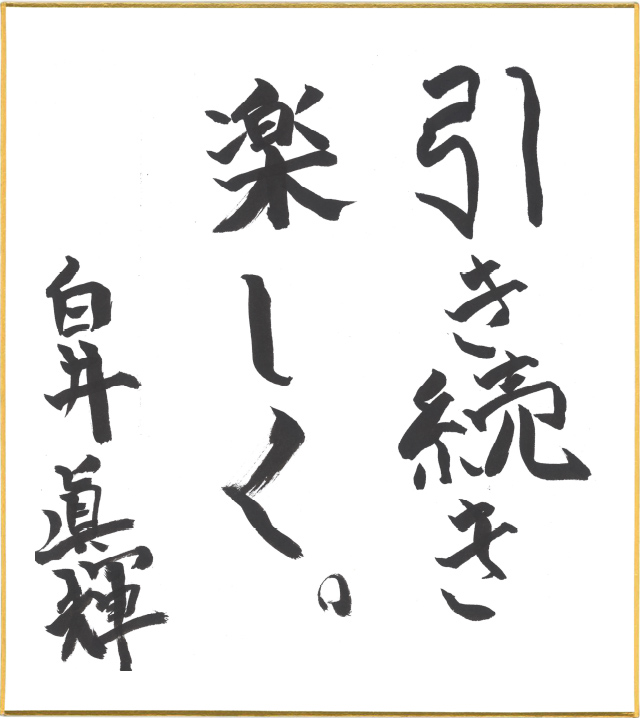 引き続き
楽しく。
白井眞輝